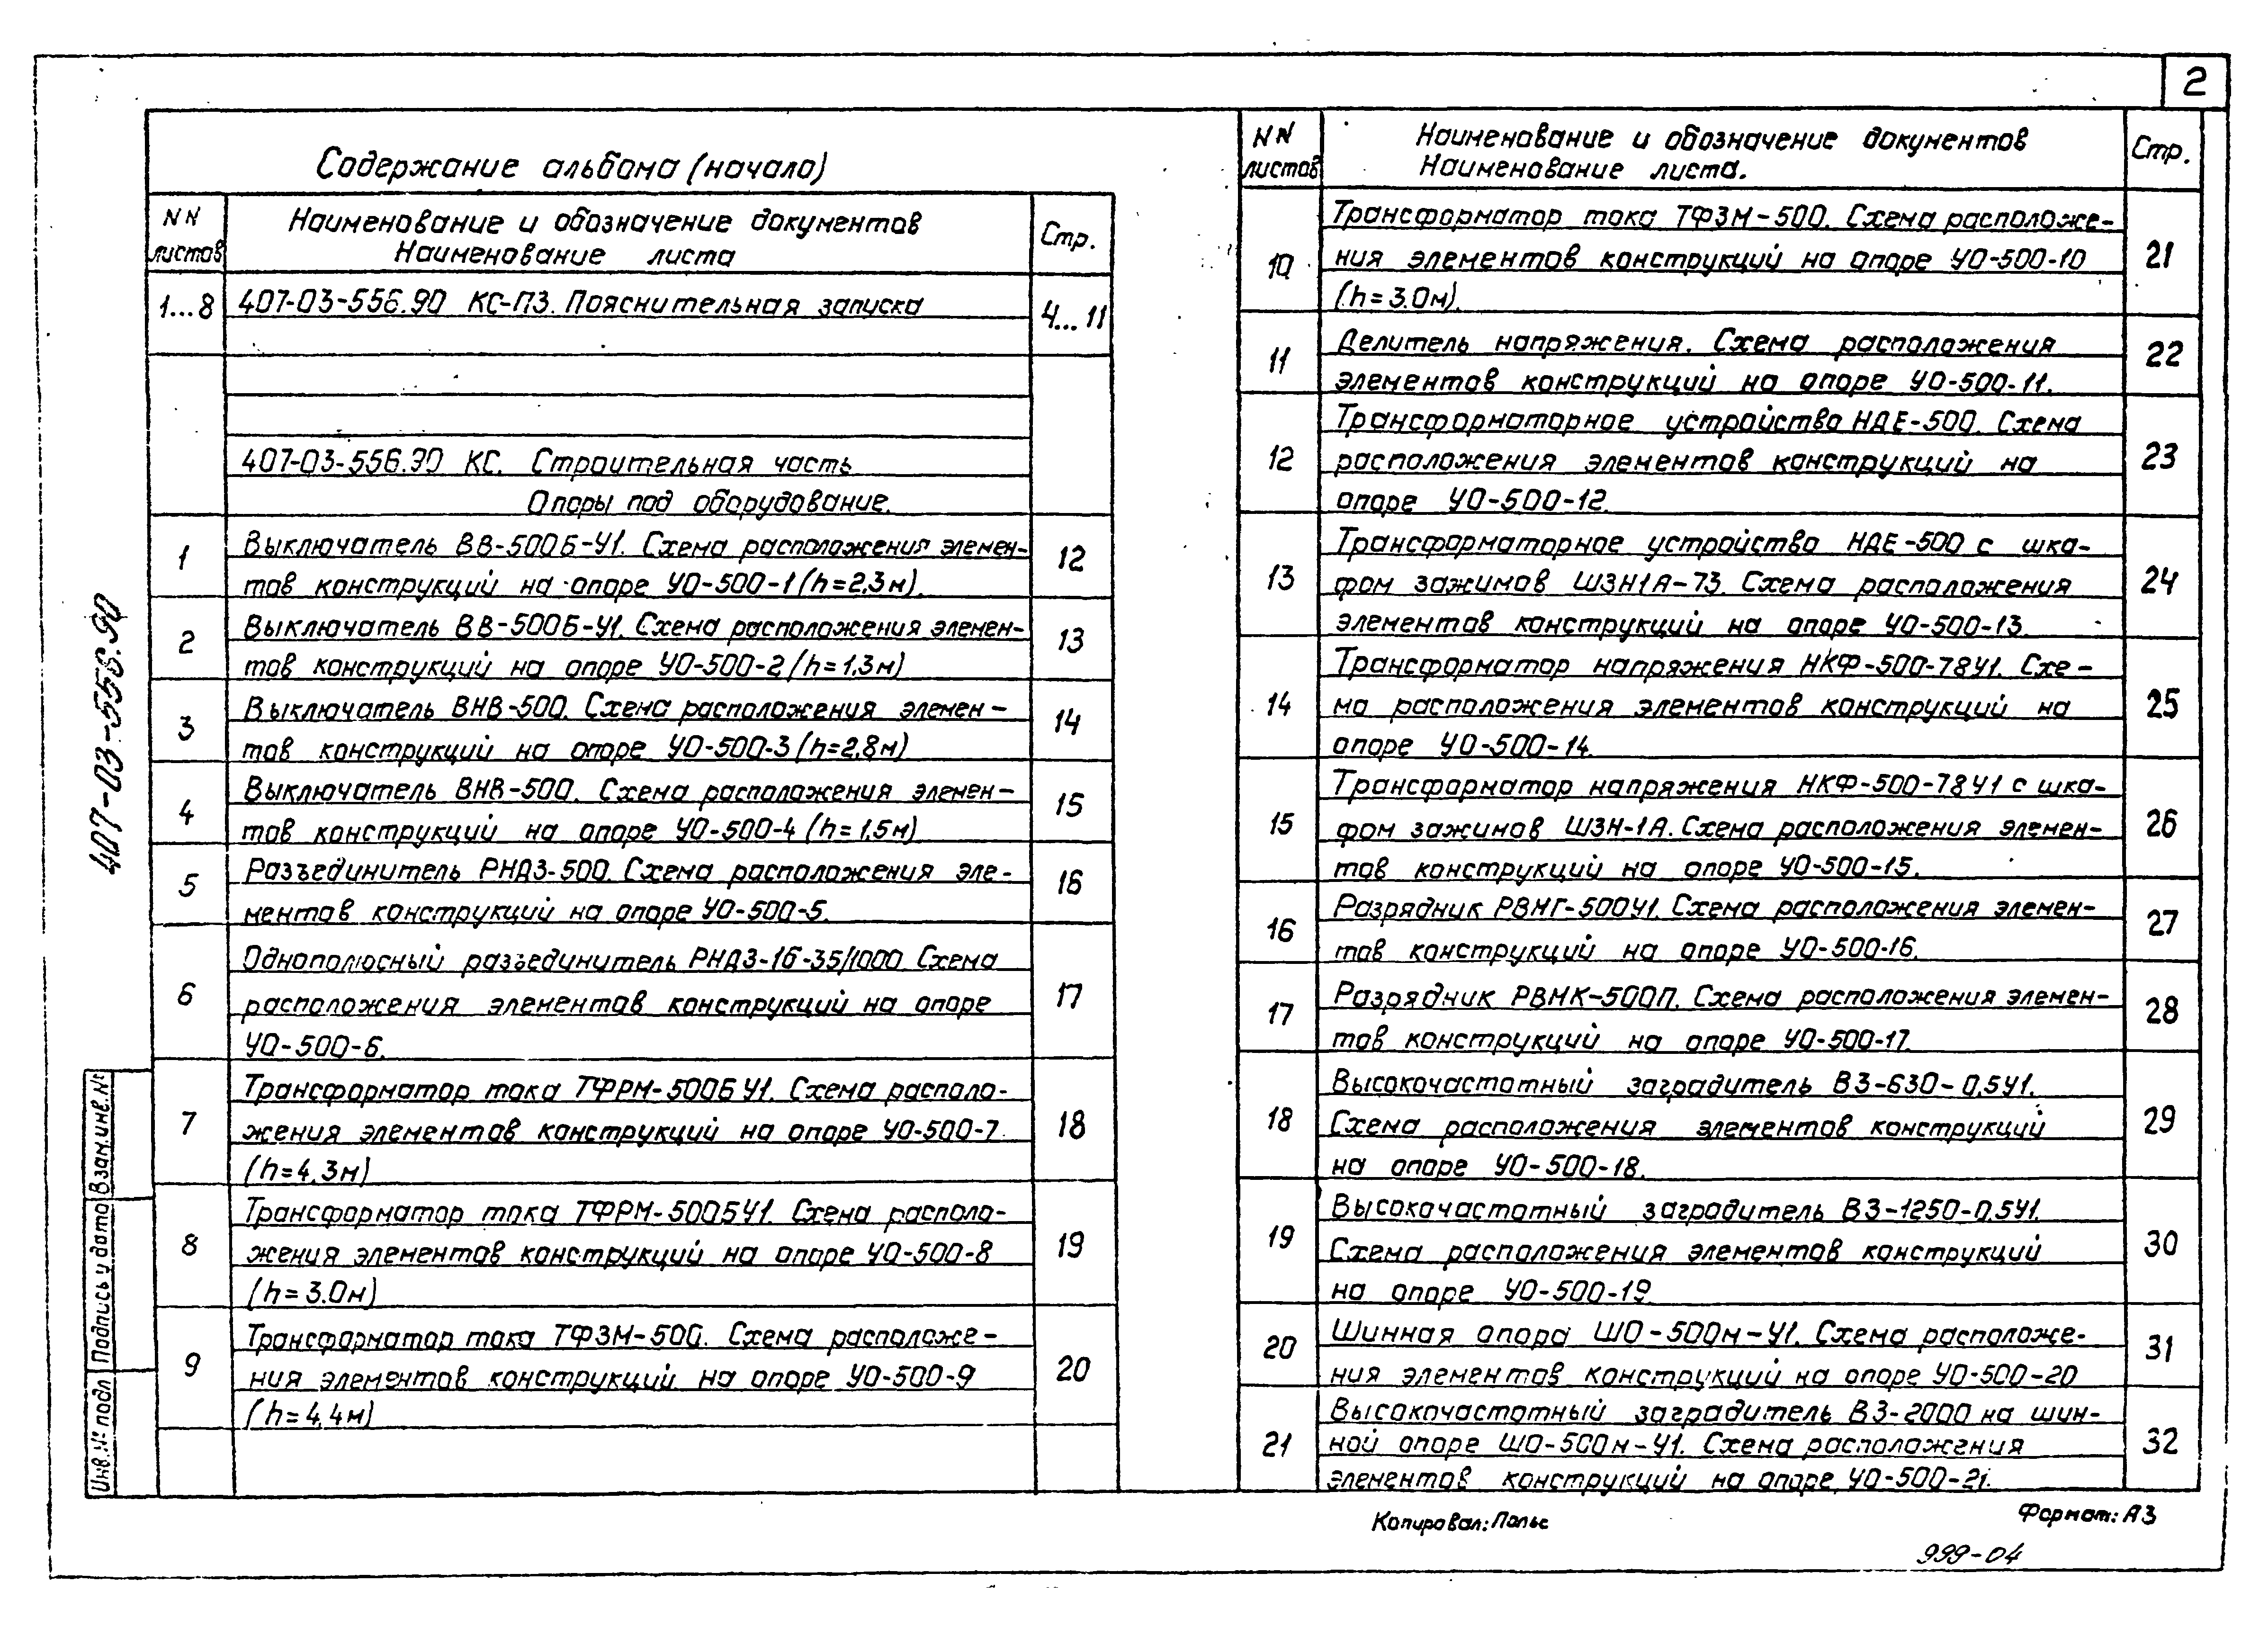 2
Содержание альбома (начало)
NN листов
Наименование и обозначение документов
Наименование листа
Стр.
1...8
407-03-556.90 КС-ПЗ. Пояснительная записка
4...11
407-03-556.90 КС. Строительная часть
Опоры под оборудование.
1
Выключатель ВВ-500Б-У1. Схема расположения элемен-
тов конструкций на опоре УО-500-1 (h=2,3м).
12
2
Выключатель ВВ-500Б-У1. Схема расположения элемен-
тов конструкций на опоре УО-500-2 (h=1,3м)
13
3
Выключатель ВНВ-500. Схема расположения элемен-
тов конструкций на опоре УО-500-3 (h=2,8м)
14
4
Выключатель ВНВ-500. Схема расположения элемен-
тов конструкций на опоре УО-500-4 (h=1,5м)
15
5
Разъединитель РНДЗ-500. Схема расположения эле-
ментов конструкций на опоре УО-500-5.
16
6
Однополюсный разъединитель РНДЗ-1б-35/1000 Схема
расположения элементов конструкций на опоре
УО-500-6.
17
7
Трансформатор тока ТФРМ-500Б У1. Схема располо-
жения элементов конструкций на опоре УО-500-7
(h=4.3м)
18
8
Трансформатор тока ТФРМ-500Б У1. Схема располо-
жения элементов конструкций на опоре УО-500-8
(h=3.0м)
19
9
Трансформатор тока ТФЗМ-500. Схема расположе-
ния элементов конструкций на опоре УО-500-9
(h=4,4м)
20
NN листов
Наименование и обозначение документов
Наименование листа.
Стр.
10
Трансформатор тока ТФЗМ-500. Схема расположе-
ния элементов конструкций на опоре УО-500-10
(h=3.0м).
21
11
Делитель напряжения. Схема расположения
элементов конструкций на опоре УО-500-11.
22
12
Трансформаторное устройство НДЕ-500. Схема
расположения элементов конструкций на
опоре УО-500-12.
23
13
Трансформаторное устройство НДЕ-500 с шка-
фом зажимов ШЗН1А-73. Схема расположения
элементов конструкций на опоре УО-500-13.
24
14
Трансформатор напряжения НКФ-500-78У1. Схе-
ма расположения элементов конструкций на
опоре УО-500-14.
25
15
Трансформатор напряжения НКФ-500-78У1 с шка-
фом зажимов ШЗН-1А. Схема расположения элемен-
тов конструкций на опоре УО-500-15.
26
16
Разрядник РВМГ-500У1. Схема расположения элемен-
тов конструкций на опоре УО-500-16.
27
17
Разрядник РВМК-500П. Схема расположения элемен-
тов конструкций на опоре УО-500-17.
28
18
Высокочастотный заградитель ВЗ-630-0,5У1.
Схема расположения элементов конструкций
на опоре УО-500-18.
29
19
Высокочастотный заградитель ВЗ-1250-0,5У1.
Схема расположения элементов конструкций
на опоре УО-500-19
30
20
Шинная опора ШО-500м-У1. Схема расположе-
ния элементов конструкций на опоре УО-500-20
31
21
Высокочастотный заградитель ВЗ-2000 на шин-
ной опоре ШО-500м-У1. Схема расположения
элементов конструкций на опоре УО-500-21.
32
407-03-556.90
Инв. № подл
Подпись и дата
Взам.инв.№
Копировал:
Формат: А3
999-04